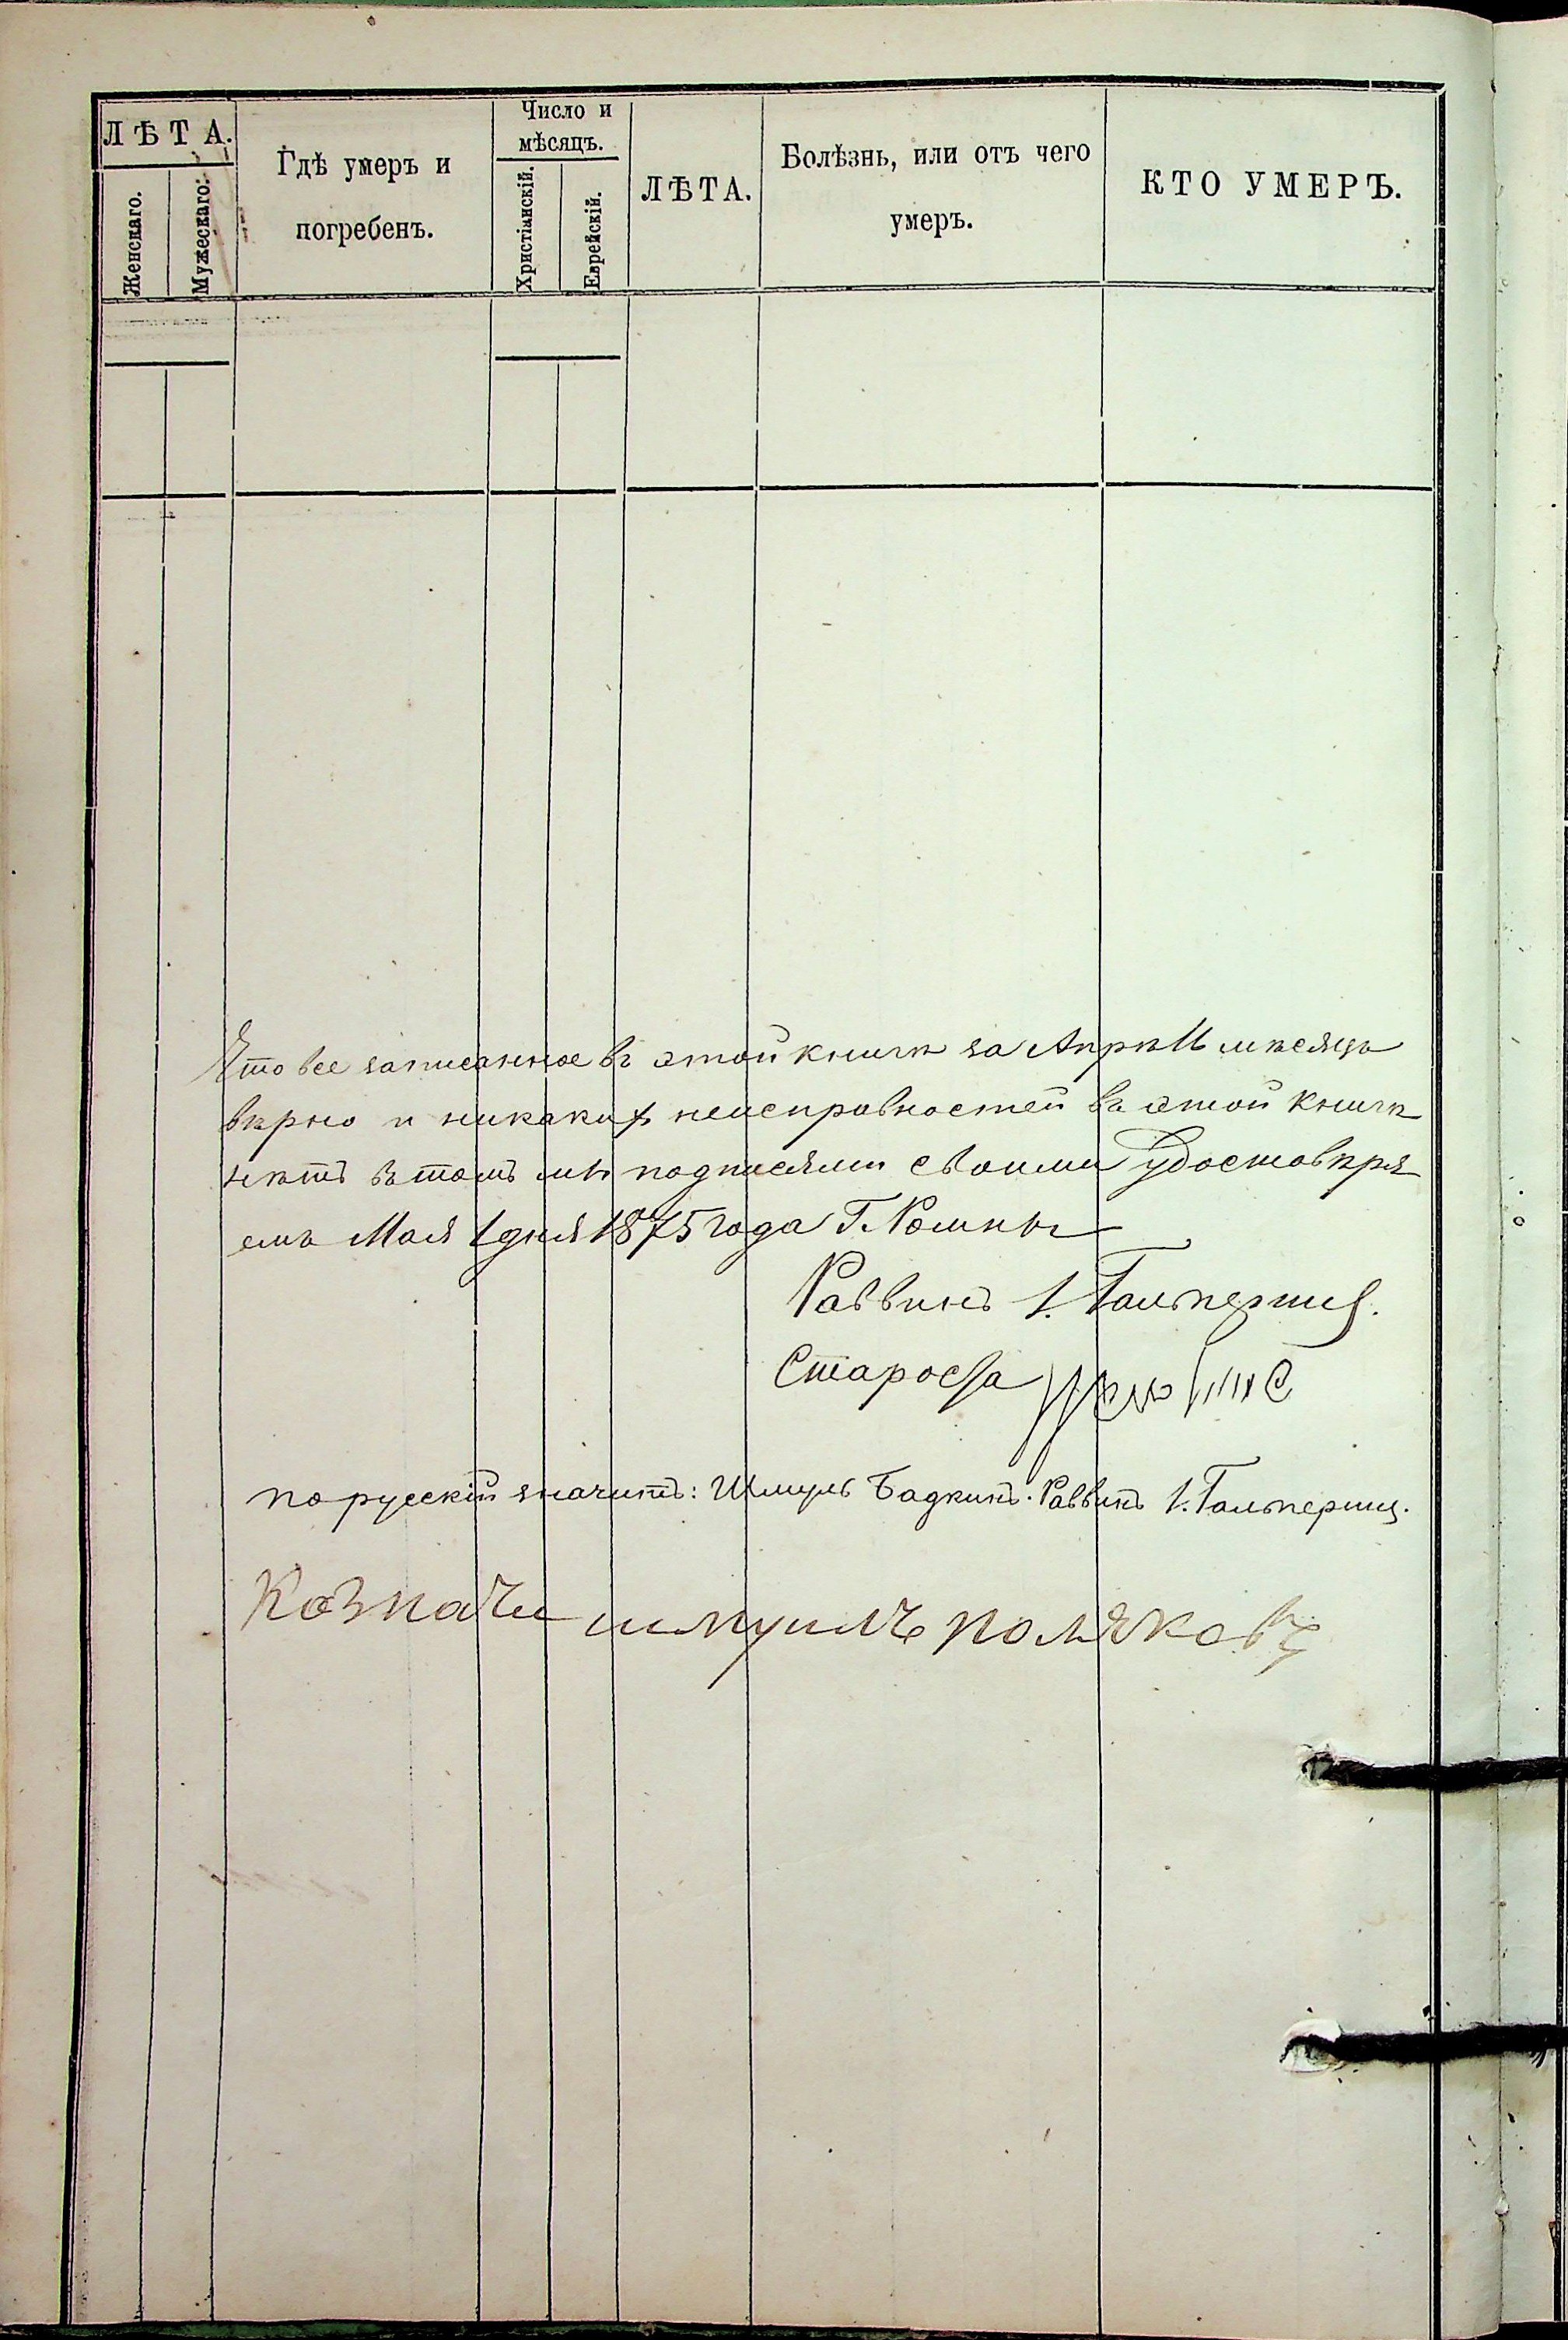 ЛѢТА.
Женскаго.
Мужескаго.
Гдѣ умеръ и
погребенъ.
Число и
мѣсяцъ.
Христіанскій.
Еврейскій.
ЛѢТА.
Болѣзнь, или отъ чего
умеръ.
КТО УМЕРЪ.
Что все записанное въ этой книгѣ за Апрѣль мѣсяцъ
вѣрно и никакихъ неисправностей въ этой книгѣ
нѣтъ въ томъ мы подписями своими удостовѣря
емъ Мая 1 дня 1875 года Г. Ромны
Раввинъ І. Гальперинъ.
Староста
по русскій значитъ: Шмуль Бадкинъ. Раввинъ І. Гальперинъ.
Козначи шмуилъ поляковъ